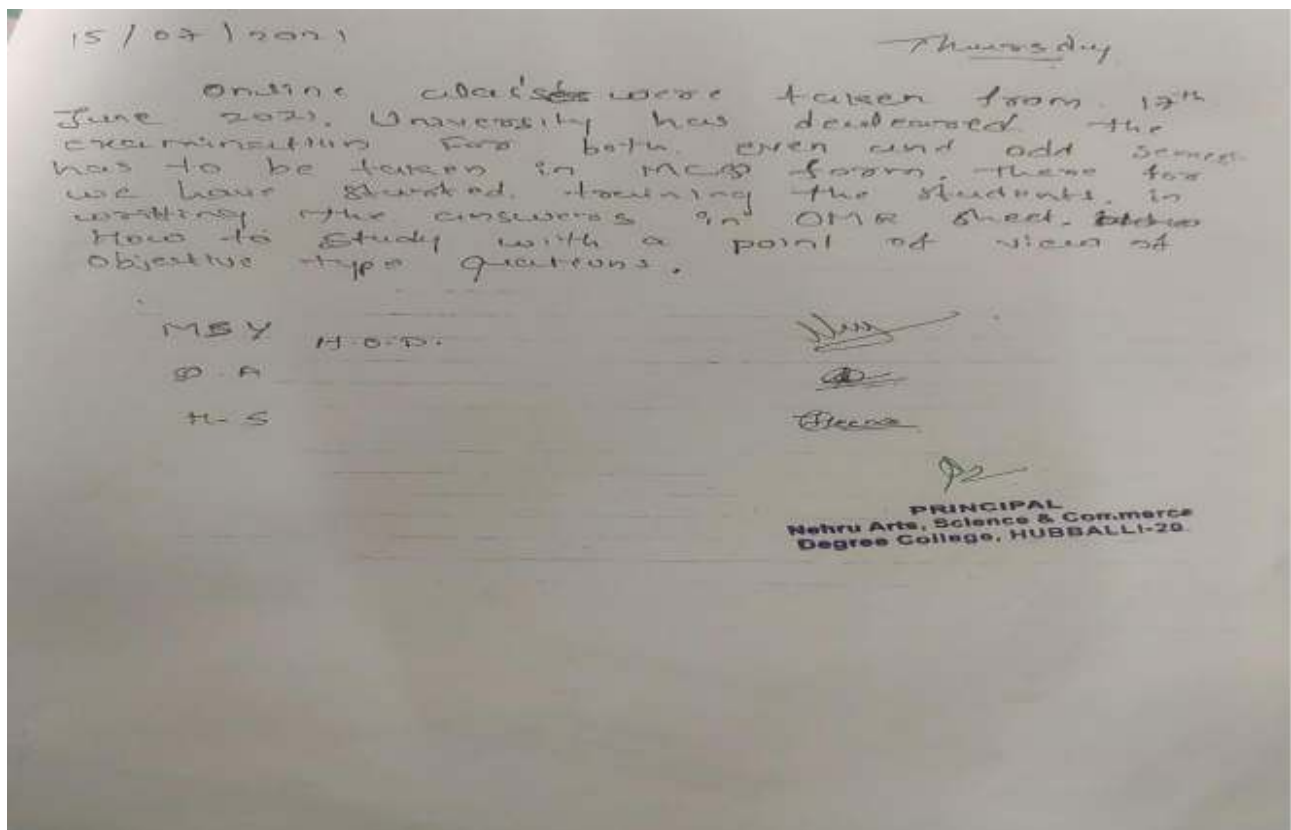 15/07/2021 Thursday
Online classes were taken from 17th
June 2021. University has decleared the
examination for both even and odd semes
has to be taken in MCQ form. there for
we have started training the students in
writting the answers in OMR sheet.
How to study with a point of view of
Objective type
MBY H.O.D.
H-S
PRINCIPAL
Nehru Arts, Science & Commerce
Degree College, HUBBALLI-20.